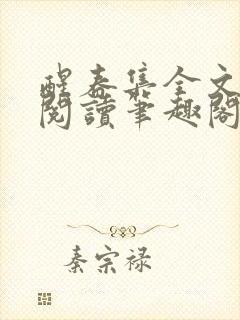 醒春集全文
閱讀筆趣閣
秦宗禄